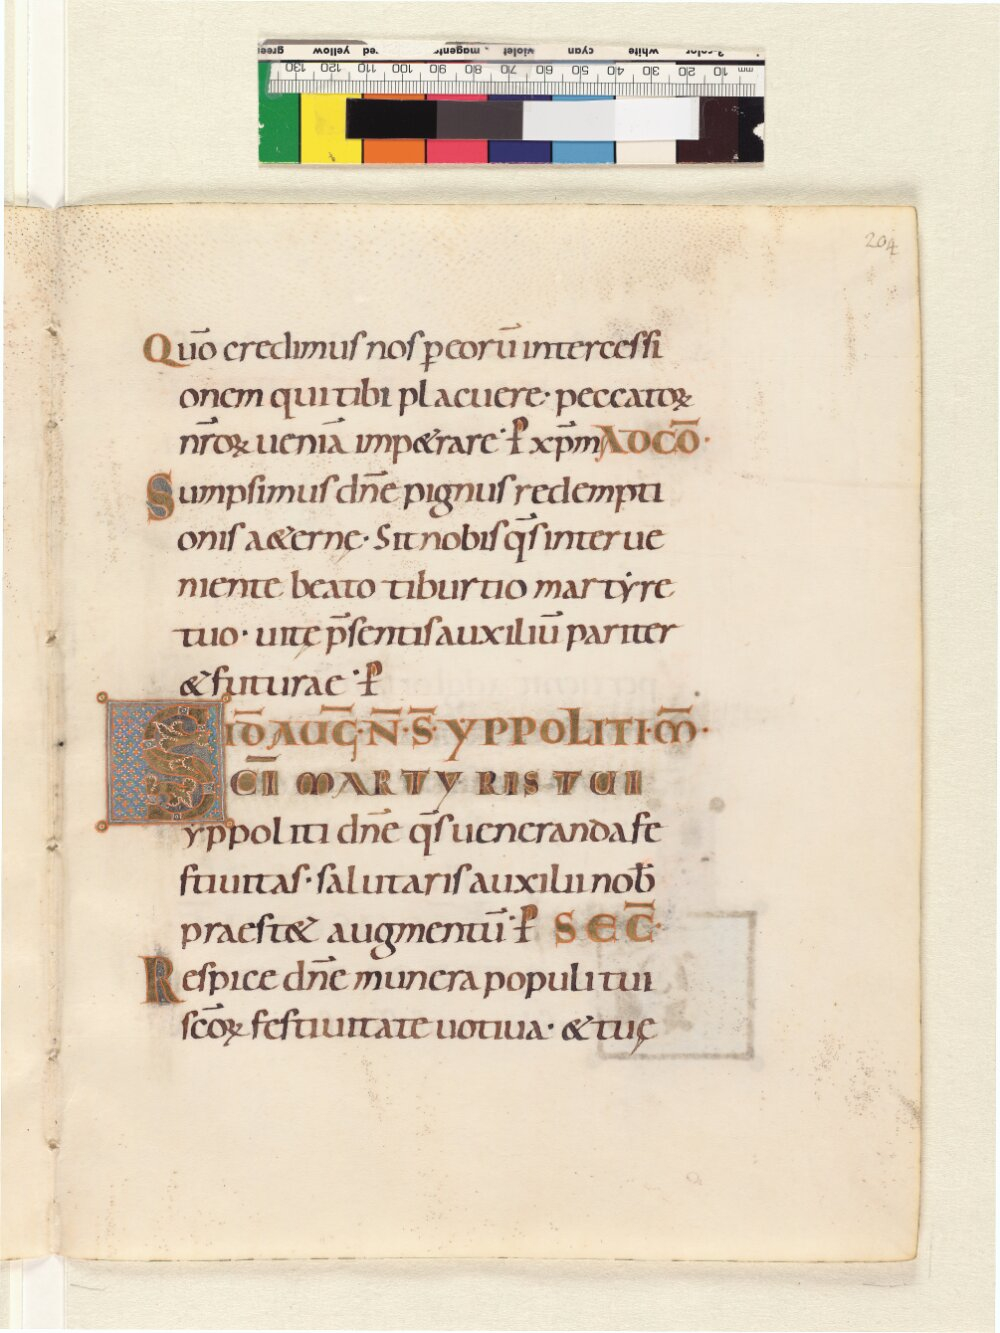 mm 10 20 30 40 50 60 70 80 90 100 110 120 130
white cyan violet magenta yellow green
204
Quo̅ credimus nos ꝑ eoru̅ intercessi
onem qui tibi placuere· peccatoꝝ
nr̅oꝝ uenia̅ imp&rare· P xp̅m AD CO̅·
Sumpsimus dn̅e pignus redempti
onis a&erne· Sit nobis qs̅ interue
niente beato tiburtio martẏre
tuo· uitę p̅sentis auxiliu̅ pariter
& futurae· P
ID̅ AUG̅· N̅· S̅ YPPOLITI· M̅·
SCI̅ MARTYRIS TUI
yppoliti dn̅e qs̅ ueneranda fe
stiuitas· salutaris auxilii nob̅
praest& augmentu̅· P SEC̅·
Respice dn̅e munera populi tui
sc̅oꝝ festiuitate uotiua· & tuę